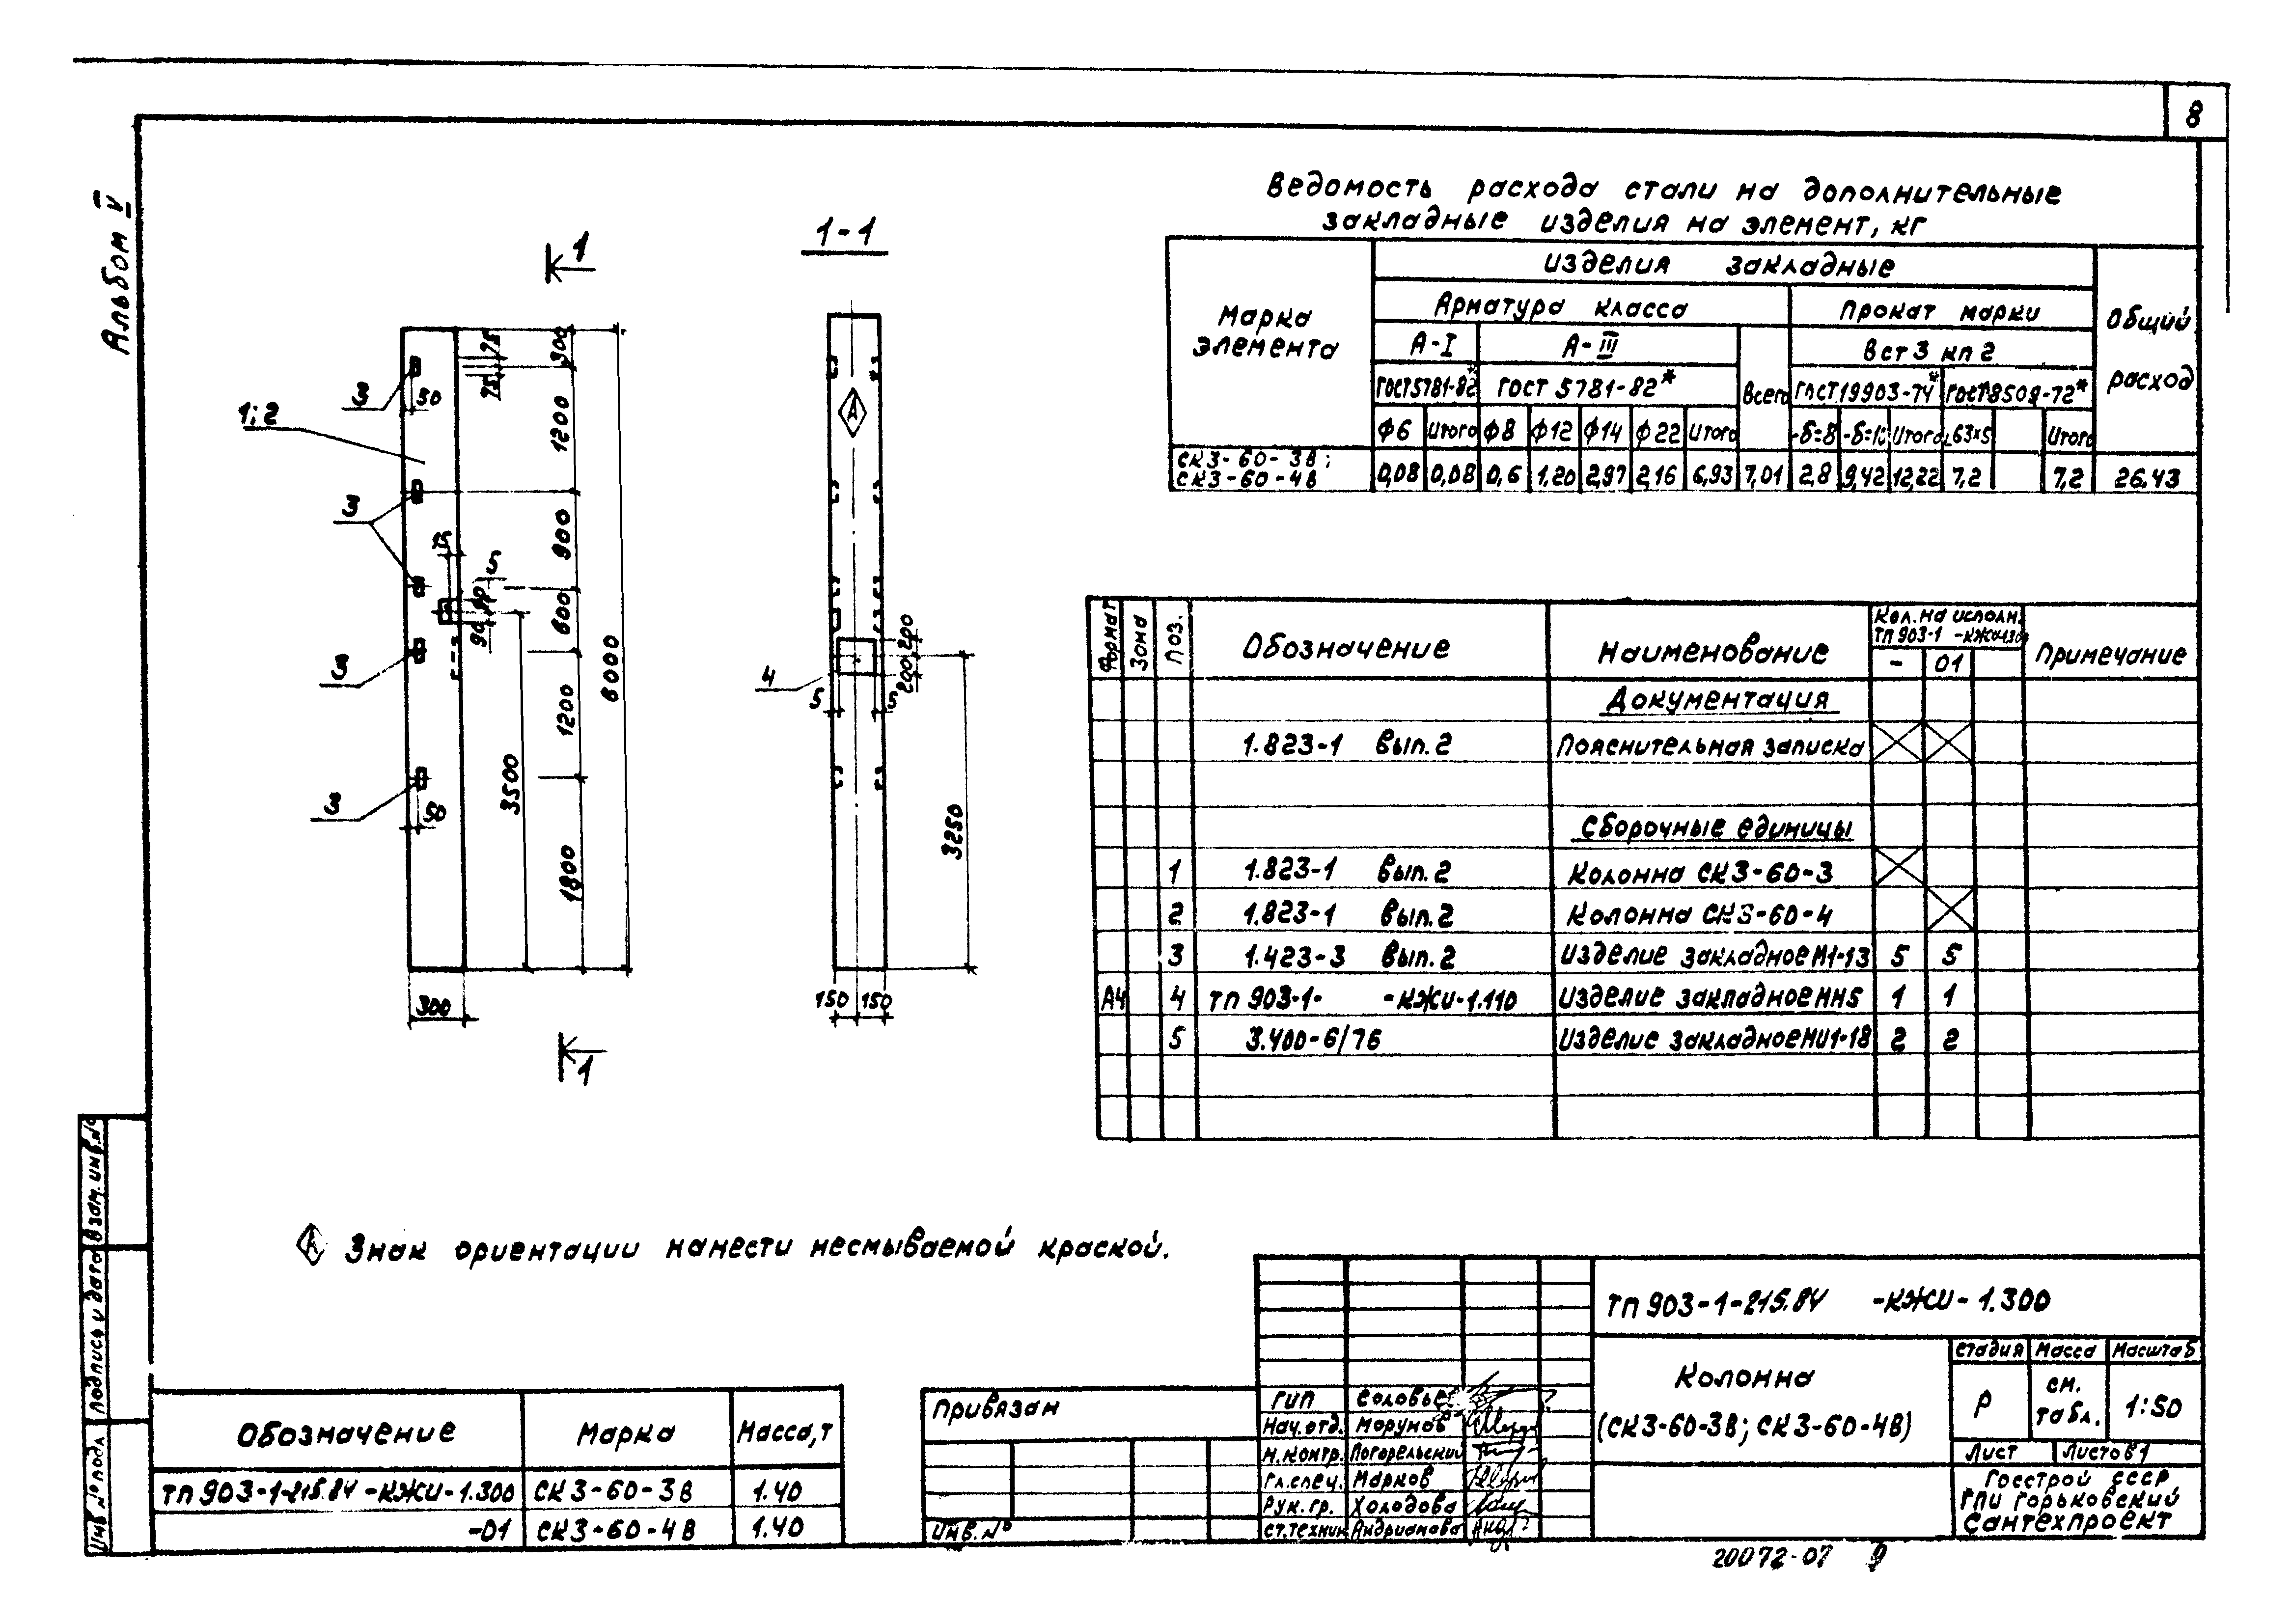 8
Альбом V
Ведомость расхода стали на дополнительные
закладные изделия на элемент, кг
Марка элемента
Изделия закладные
Общий расход
Арматура класса
Прокат марки
А-I
А-III
Всего
Вст3 кп2
ГОСТ 5781-82*
ГОСТ 5781-82*
ГОСТ 19903-74*
ГОСТ 8509-72*
ф6 Итого ф8 ф12 ф14 ф22 Итого -δ=8 Итого ∟63×5 Итого
СК3-60-3В;
СК3-60-4В
0,08 0,08 0,6 1,20 2,97 2,16 6,93 7,01 2,8 9,42 12,22 7,2 7,2 26.43
1
1-1
3
30
75
75
300
1;2
1200
3
900
75
5
90
90
600
3
6000
1200
3
50
3500
1800
300
1
А
200
200
4
5
5
3250
150 150
Формат Зона Поз. Обозначение Наименование Кол. на исполн. Примечание
ТП 903-1 -КЖИ-1.300
- 01
Документация
1.823-1 Вып. 2 Пояснительная записка
Сборочные единицы
1 1.823-1 Вып. 2 Колонна СК3-60-3
2 1.823-1 Вып. 2 Колонна СК3-60-4
3 1.423-3 Вып. 2 Изделие закладное М1-13 5 5
А4 4 ТП 903-1- -КЖИ-1.110 Изделие закладное МН5 1 1
5 3.400-6/76 Изделие закладное МИ1-18 2 2
А Знак ориентации нанести несмываемой краской.
Взам. инв. №
Подпись и дата
Инв. № подл.
Обозначение Марка Масса, т
ТП 903-1-215.84 -КЖИ-1.300 СК3-60-3В 1.40
-01 СК3-60-4В 1.40
Привязан
Инв. №
ГИП Соловьев
Нач. отд. Морунов
Н. контр. Погорельский
Гл. спец. Марков
Рук. гр. Холодова
Ст. техник Андрианова
ТП 903-1-215.84 -КЖИ-1.300
Колонна
(СК3-60-3В; СК3-60-4В)
Стадия Масса Масштаб
Р см. табл. 1:50
Лист Листов 1
Госстрой СССР
ГПИ Горьковский
Сантехпроект
20072-07 9